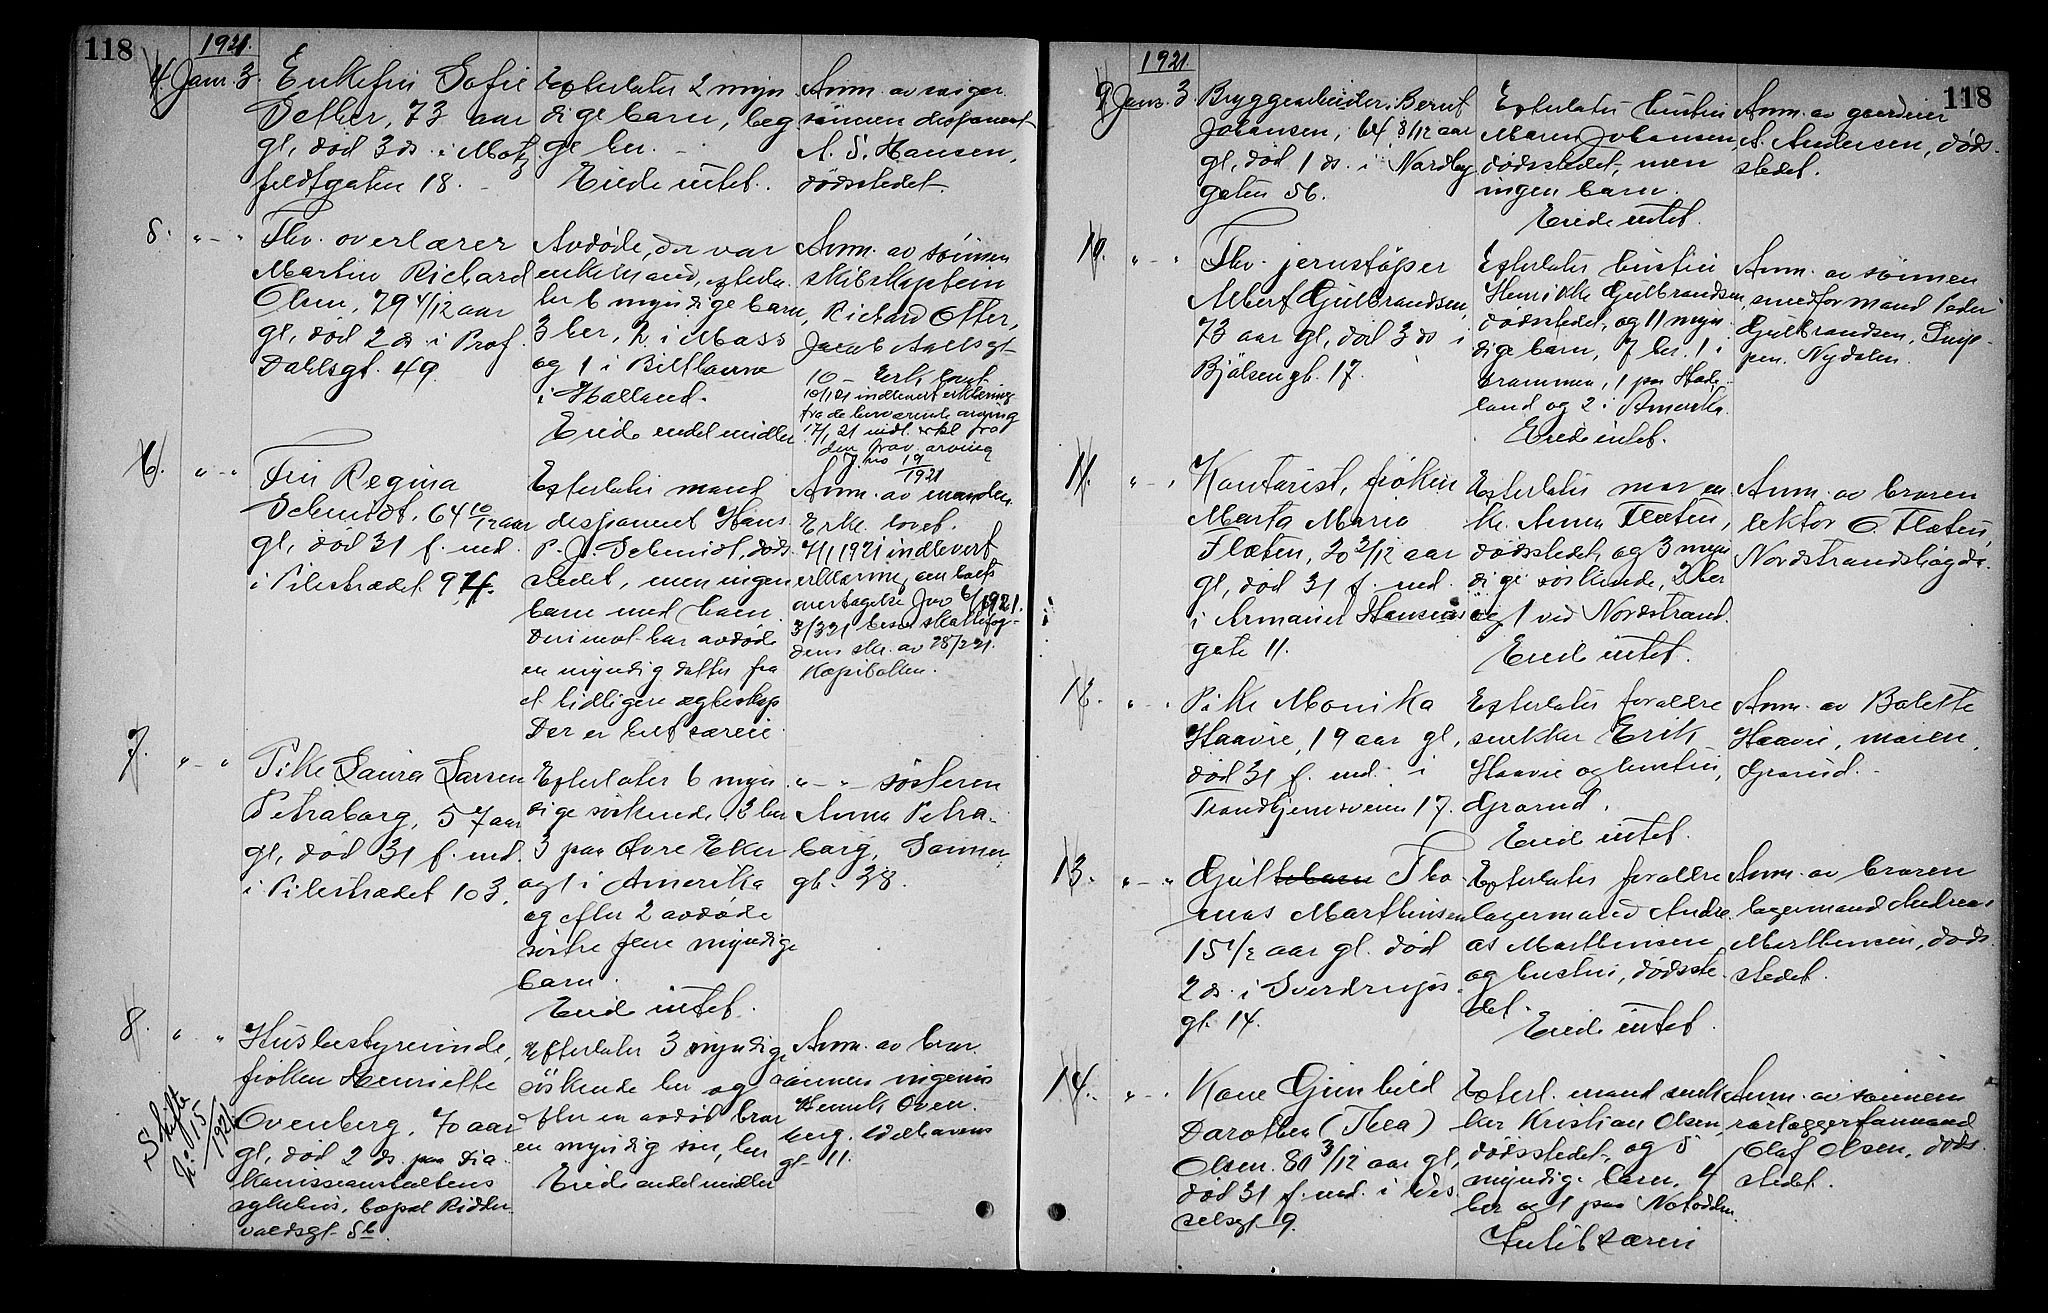 118
1921.
4. Janr. 3.
Enkefru Sofie
73 aar
gl, død 3 ds. i Motz
feldtgaten 18.
Efterlater 2 myn
dige barn, beg
ge her.
Eiede intet.
Anm. av sviger
sønnen disponent
A. S. Hansen,
dødsstedet.
5. " - "
Fhv. overlærer
Martin Richard
Olsen, 79 4/12 aar
gl, død 2 ds. i Prof.
Dahlsgt. 49.
Avdøde, der var
enkemand, efterla
ter 6 myndige barn,
3 her, 2 i Moss
og 1 i
i Holland.
Eiede endel midler
Anm. av sønnen
skibskaptein
Richard Otter,
Jacob Aallsgt
10 - Erk. lovet
10/1 21 indlevert erklæring
fra de herværende arving
17/1 21 indl. erkl. fra
den frav. arving
J. no 19/1921
6. " - "
Fru Regina
Schmidt, 64 10/12 aar
gl, død 31 f. md.
i Pilestrædet 94.
Efterlater mand
disponent Hans
P. J. Schmidt, døds
stedet, men ingen
barn med ham.
Derimot har avdøde
en myndig datter fra
et tidligere ægteskap
Der er helt særeie
Anm. av manden.
Erkl. lovet.
7/1 1921 indlevert
erklæring om boets
overtagelse Jno 6/1921.
3/3 21 besv. skattefog-
dens skr. av 28/2 21.
Kapitallen.
7. " - "
Pike Laura Larsen
Petraborg, 57 aar
gl, død 31 f. md.
i Pilestrædet 103.
Efterlater 6 myn
dige søskende 2 her
3 paa Øvre Eker
og 1 i Amerika
og efter 2 avdøde
søstre flere myndige
barn.
Eiede intet.
" - " søsteren
Anna Petra-
borg, Sanner
gt. 38.
8. " "
Skifte
Jr. 15/1921
Husbestyrerinde,
frøken Henriette
Ovenberg, 70 aar
gl, død 2 ds. paa Dia
konissanstaltens
sykehus, bopæl Ridder
voldsgt 5b.
Efterlater 3 myndige
søskende her og
efter en avdød bror
en myndig søn, her
Eiede endel midler
Anm. av bror
sønnen ingeniør
Henrik Oven
berg. Welhavens
gt 11.
118
1921
9. Janr. 3.
Bryggearbeider Bernt
Johansen, 64 8/12 aar
gl, død 1 ds. i Nordby
gaten 56.
Efterlater hustru
Maren Johansen
dødsstedet, men
ingen barn.
Eiede intet.
Anm. av gaardeier
A. Andersen, døds-
stedet.
10. " - "
Fhv. jernstøper
Albert Gulbrandsen,
73 aar gl, død 3 ds i
Bjølsengt. 17.
Efterlater hustru
Henrikke Gulbrandsen,
dødsstedet, og 11 myn
dige barn, 7 her. 1 i
Drammen, 1 paa Hade
land og 2 i Amerika.
Eiede intet.
Anm. av sønnen
smedformand Peder
Gulbrandsen,
Nydalen.
11. " - "
Kontorist, frøken
Marta Maria
Fløten, 20 3/12 aar
gl, død 31 f. md.
i Armauer Hansens
gate 11.
Efterlater mor en
ke Anna Fløten,
dødsstedet, og 3 myn
dige søskende, 2 her
og 1 ved Nordstrand.
Eiede intet.
Anm. av broren
lektor O. Fløten,
Nordstrandshøgda.
12. " - "
Pike Monika
Haavie, 19 aar gl,
død 31 f. md. i
Trondhjemsveien 17.
Efterlater forældre
snekker Erik
Haavie og hustru,
Grorud.
Eiede intet.
Anm. av Bolette
Haavie, moren,
Grorud.
13. " - "
Gut Tho
mas Marthinsen
15 1/2 aar gl. død
2 ds. i Sverdrups
gt. 14.
Efterlater forældre
lagermand Andre
as Marthinsen
og hustru, dødsste
det.
Eiede intet.
Anm. av broren
lagermand Andreas
Marthinsen, døds
stedet.
14. " - "
Kone Gunhild
Dorothea (Thea)
Olsen. 80 3/12 aar gl,
død 31 f. md. i Wes
selsgt 9.
Efterl. mand snek
ker Kristian Olsen,
dødsstedet, og 5
myndige barn, 4
her og 1 paa Notodden.
Anm. av sønnen
rørlæggerformand
Olaf Olsen, døds
stedet.